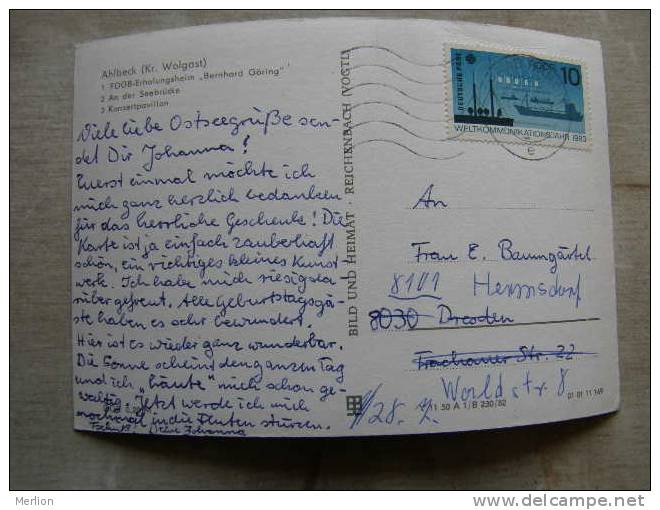 Ahlbeck (Kr. Wolgast)
1 FDGB-Erholungsheim „Bernhard Göring"
2 An der Seebrücke
3 Konzertpavillon
Viele liebe Ostseegrüße sen-
det Dir Johanna!
Zuerst einmal möchte ich
mich ganz herzlich bedanken
für das herrliche Geschenk! Die
Karte ist ja einfach zauberhaft
schön, ein richtiges kleines Kunst
werk. Ich habe mich riesig da-
rüber gefreut. Alle Geburtstagsgä-
ste haben es sehr bewundert.
Hier ist es wieder ganz wunderbar.
Die Sonne scheint den ganzen Tag
und ich „häute" mich schon ge-
waltig. Jetzt werde ich mich
nochmal in die Fluten stürzen.
Tschüß! Deine Johanna
BILD UND HEIMAT · REICHENBACH (VOGTL)
DEUTSCHE POST
DDR
10
WELTKOMMUNIKATIONSJAHR 1983
e
An
Frau E. Baumgärtel
8101 Hermsdorf
8030 Dresden
Trachauer Str. 22
Wold str. 8
28. 7.
A 1/B 230/82
01 01 11 149
Merlion
www.delcampe.net